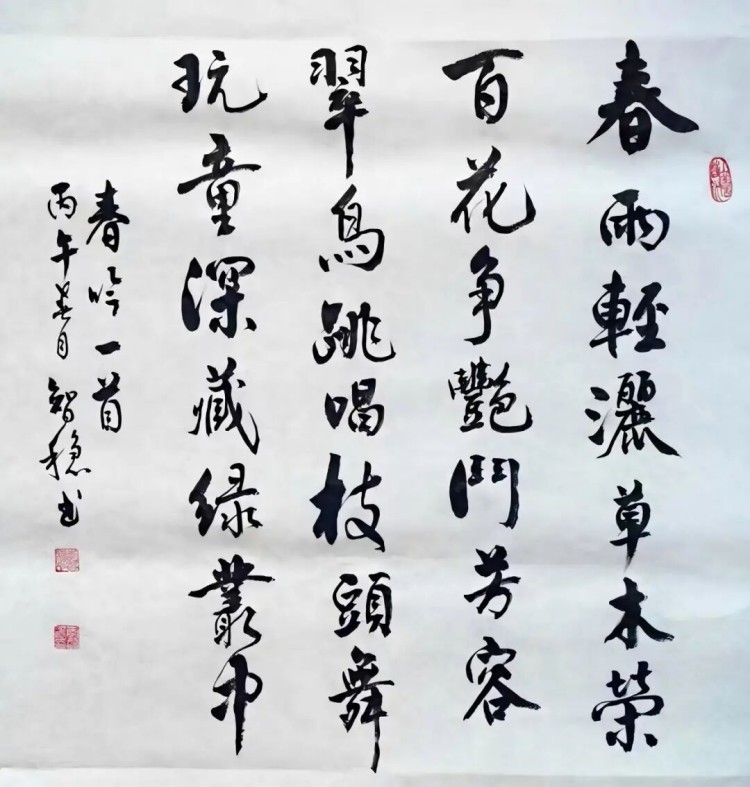 春雨輕灑草木榮
百花争艷鬥芳容
翠鳥跳唱枝頭舞
玩童深藏绿叢中
春吟一首
丙午春月智穩书